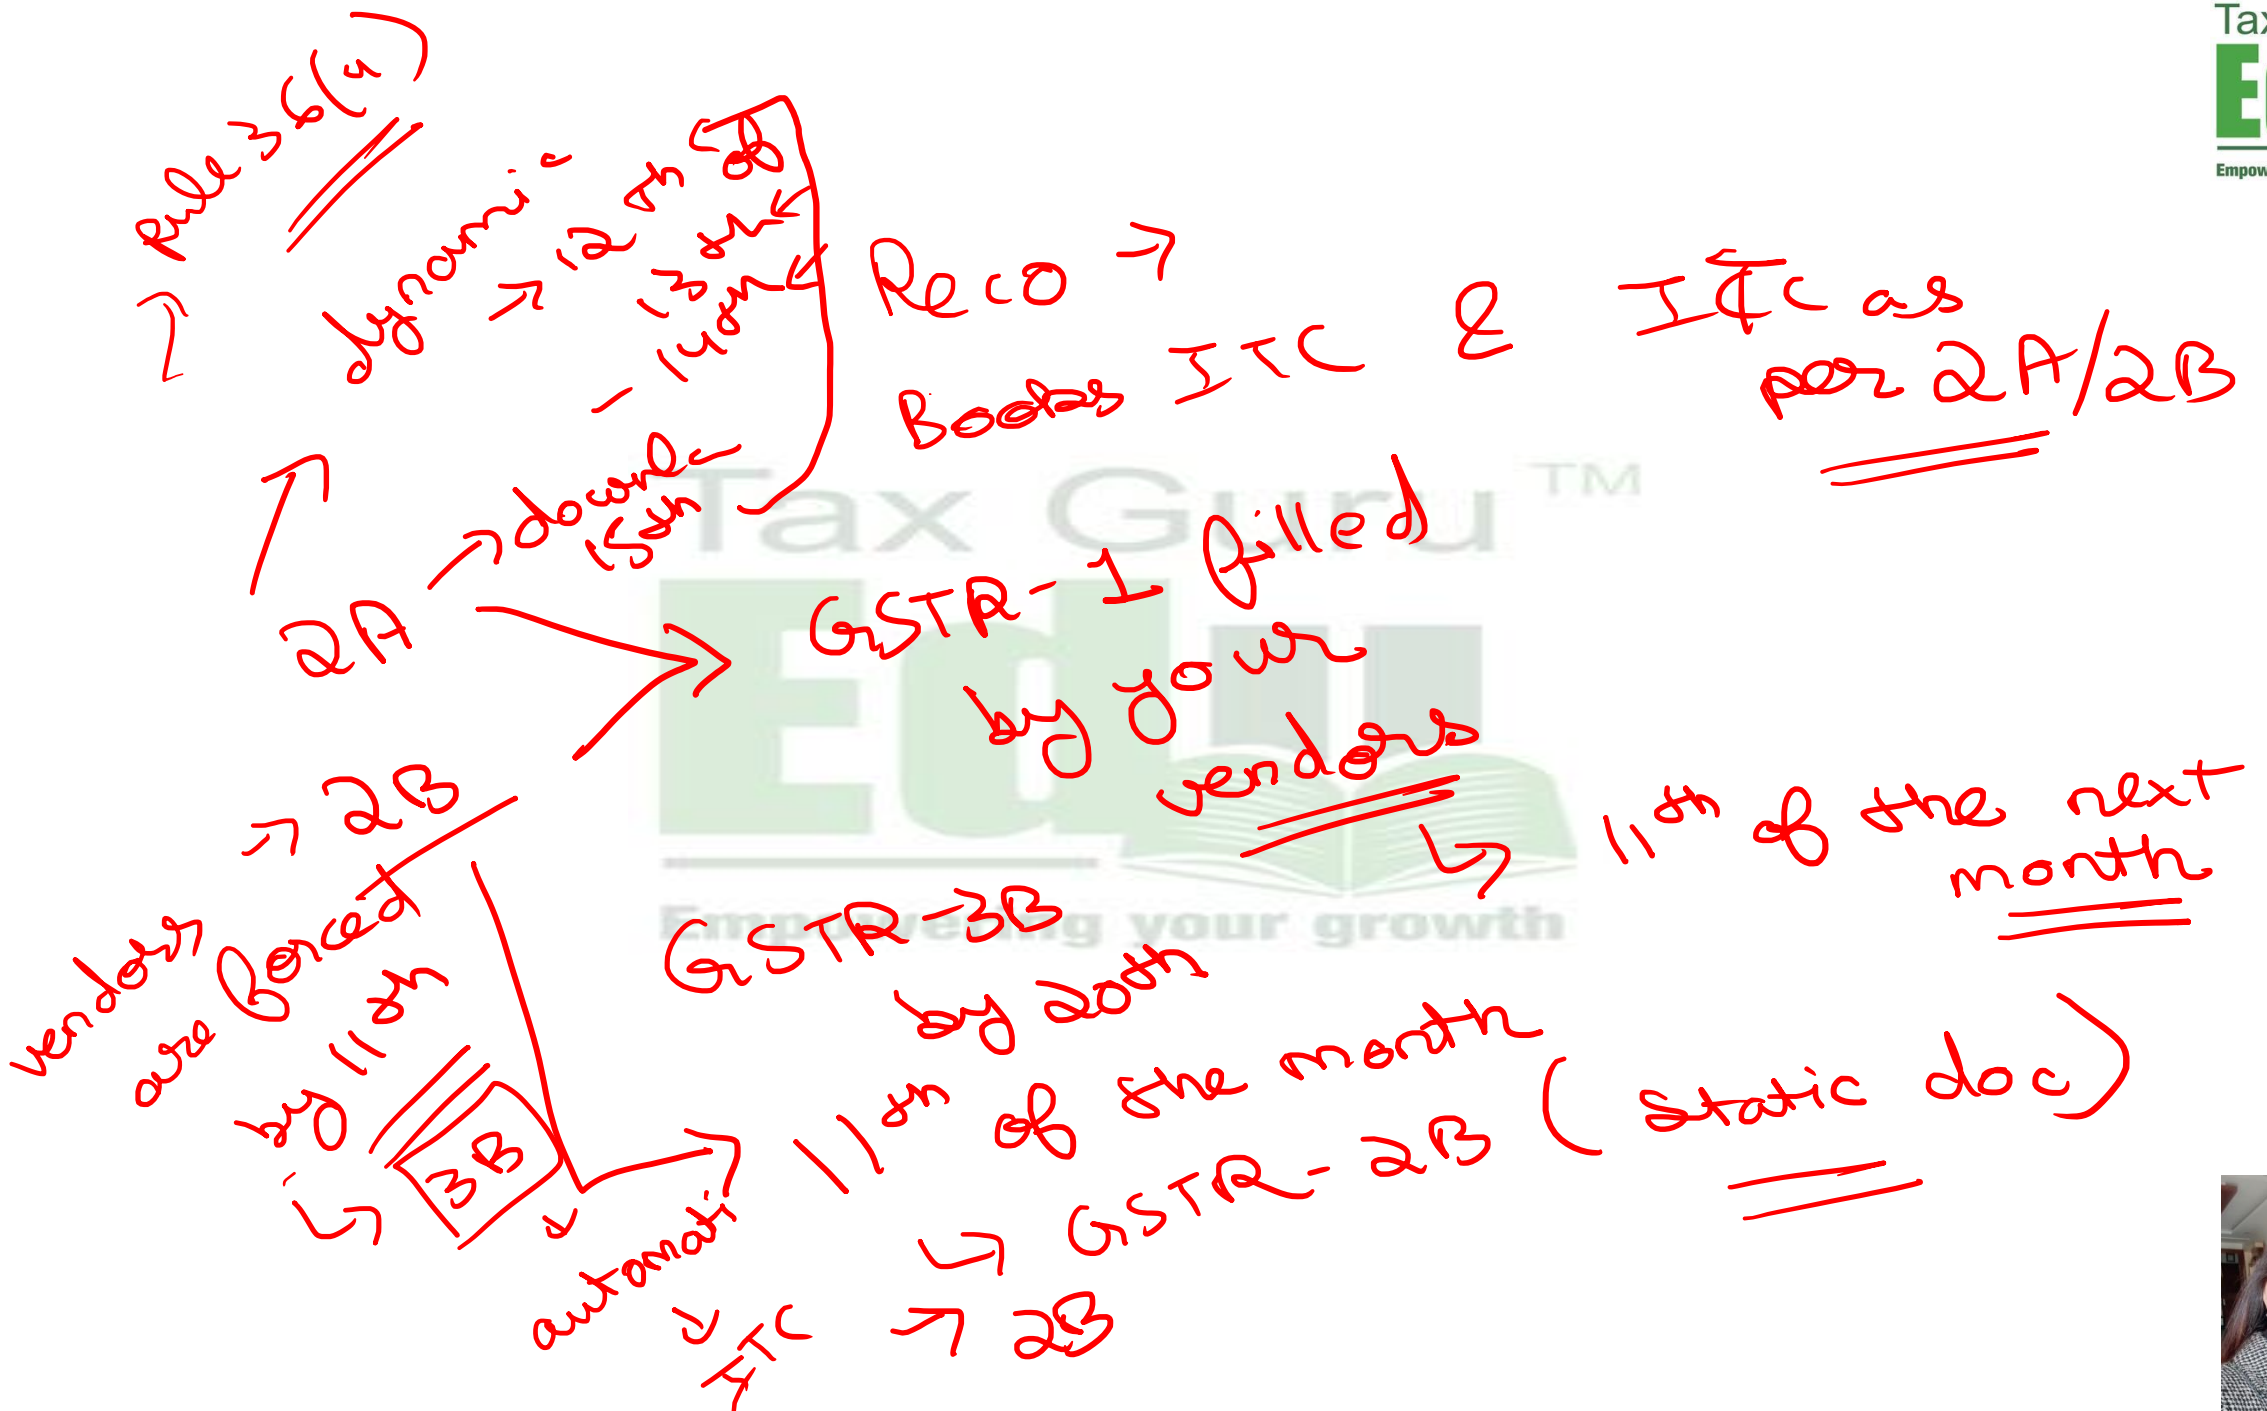 Rule 36(4)
dynamic
→ 12th of
- 13th
- 14th
→ downl
15th
2A
Reco →
Books ITC & ITC as
per 2A/2B
GSTR-1 filled
by your
vendors
↳ 11th of the next
month
→ 2B
vendors
are forced
by 11th
↳ 3B
GSTR-3B
by 20th
11th of the month
↳ GSTR-2B (static doc)
automati
ITC → 2B
Tax Guru TM
Ed
Empowering your growth
Tax
E
Empow